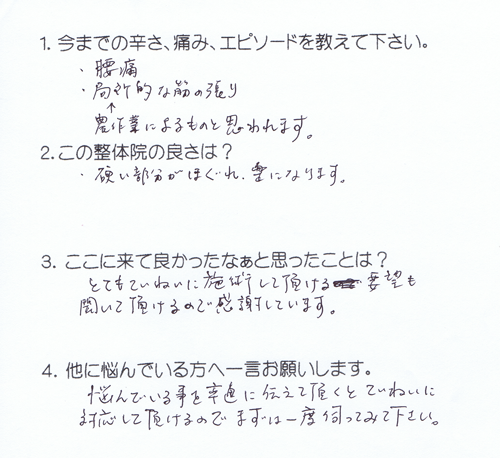 1. 今までの辛さ、痛み、エピソードを教えて下さい。
・腰痛
・局所的な筋の張り
↑
農作業によるものと思われます。
2. この整体院の良さは？
・硬い部分がほぐれ、楽になります。
3. ここに来て良かったなぁと思ったことは？
とてもていねいに施術して頂ける 要望も
聞いて頂けるので感謝しています。
4. 他に悩んでいる方へ一言お願いします。
悩んでいる事を率直に伝えて頂くとていねいに
対応して頂けるのでまずは一度伺ってみて下さい。